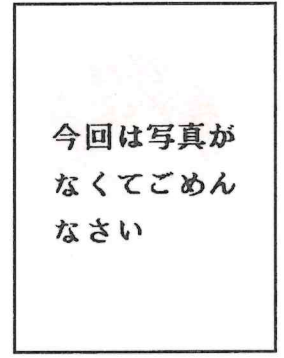 今回は写真が
なくてごめん
なさい